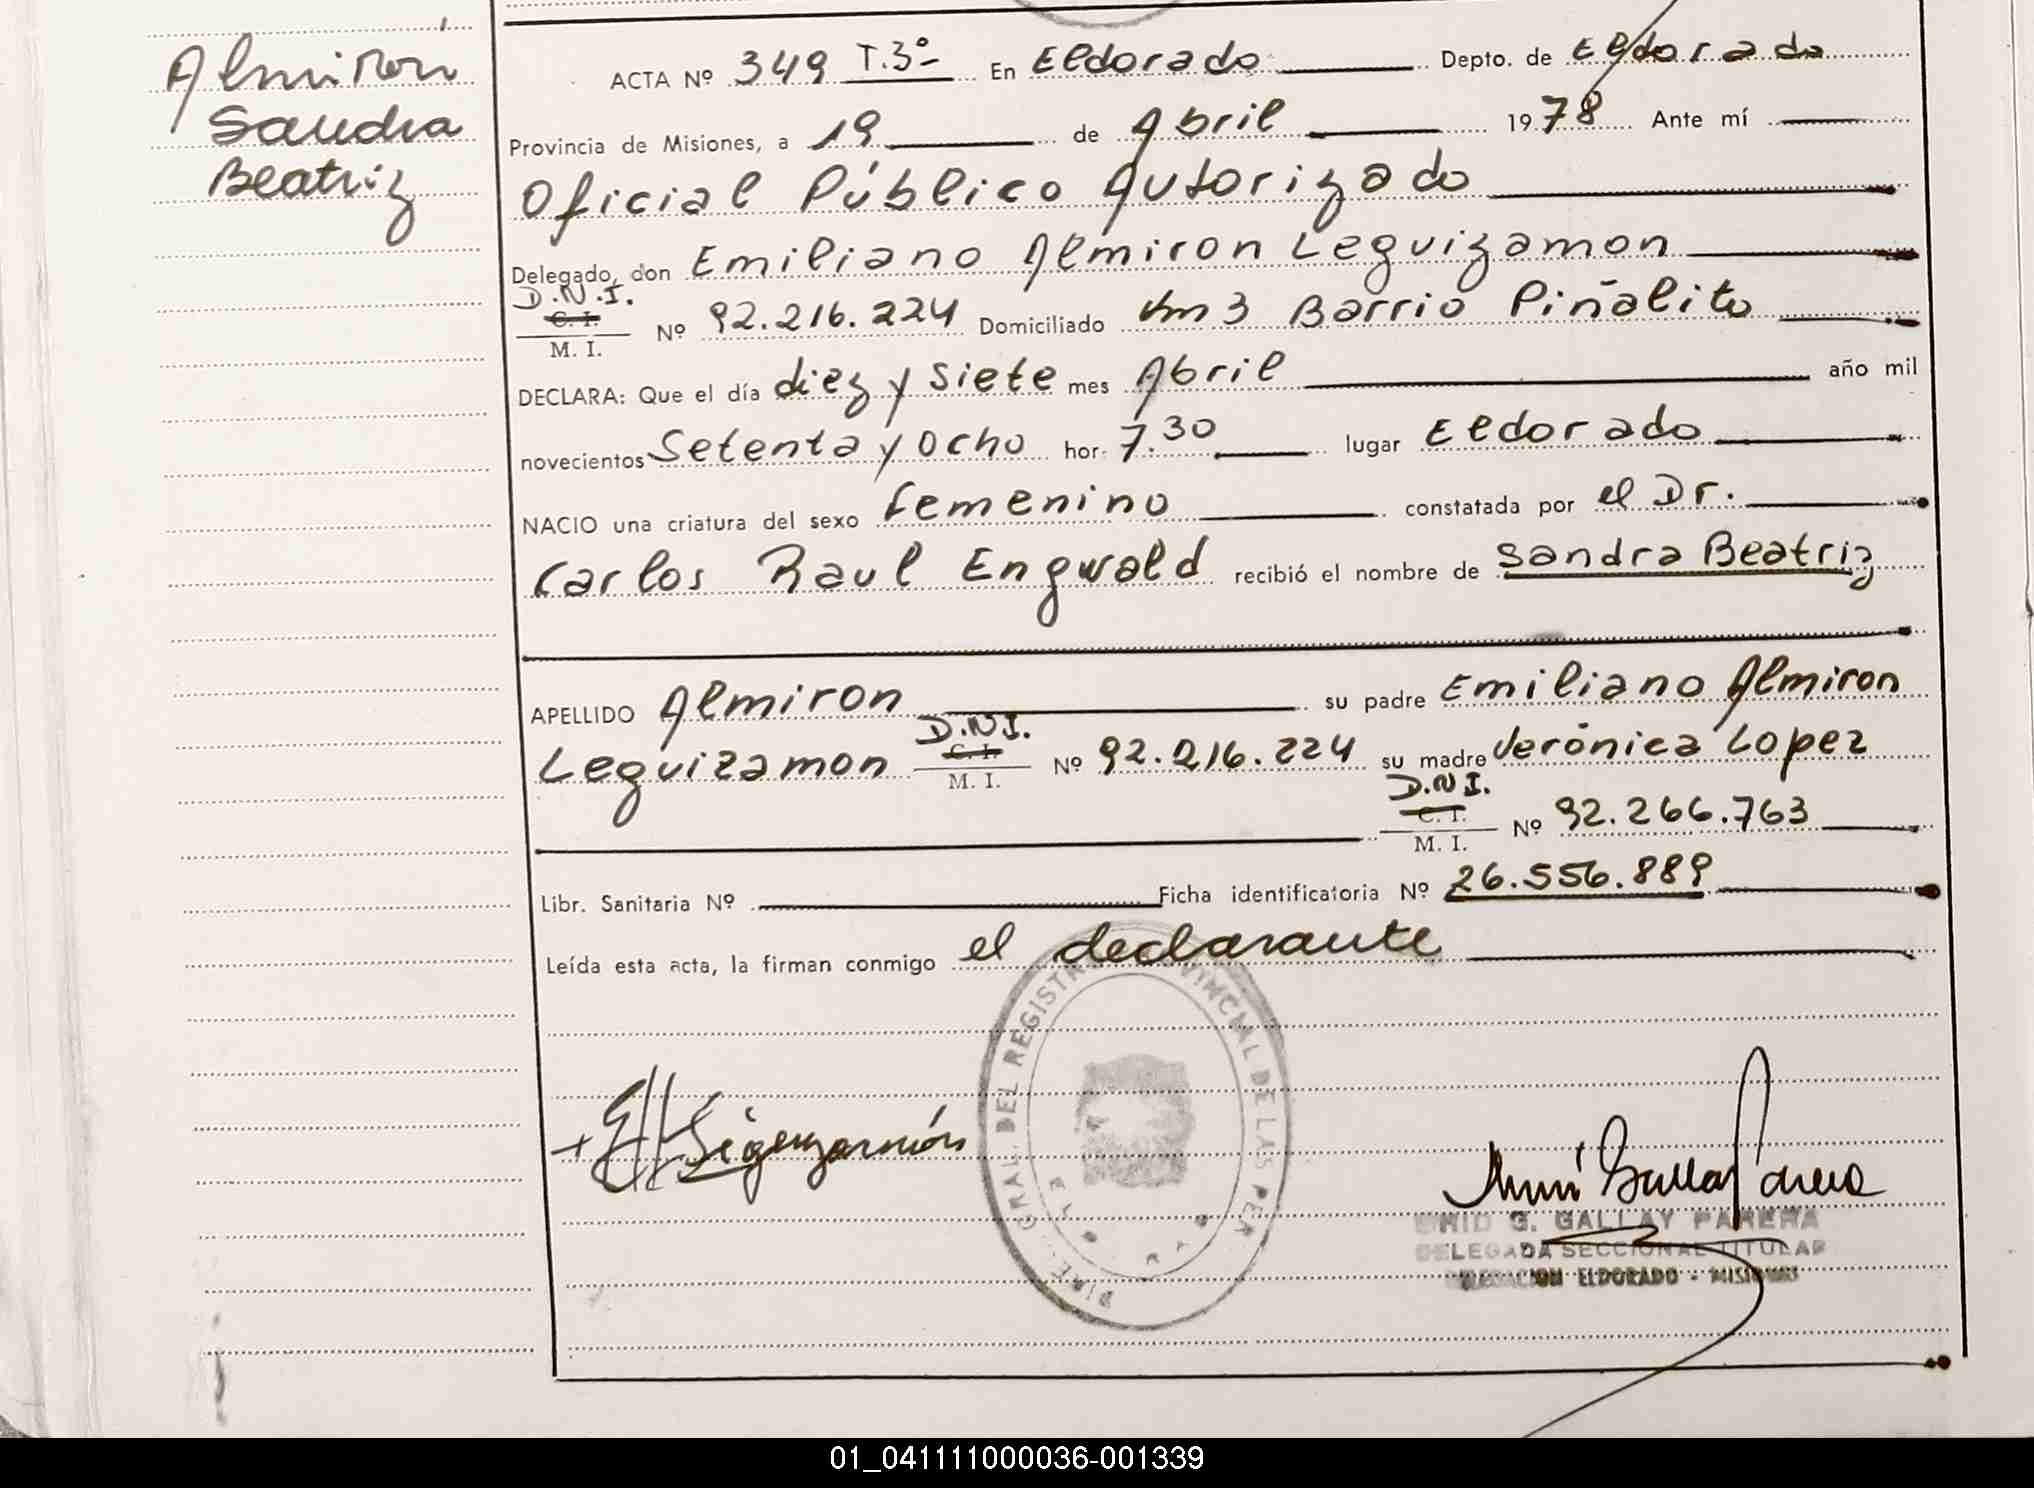 Almirón
Sandra
Beatriz
ACTA Nº 349 T.3º En Eldorado Depto. de Eldorado
Provincia de Misiones, a 19 de Abril 1978 Ante mí
Oficial Público Autorizado
Delegado, don Emiliano Almiron Leguizamon
D.N.I.
C. I.
M. I. Nº 92.216.224 Domiciliado Km 3 Barrio Piñalito
DECLARA: Que el día diez y siete mes Abril año mil
novecientos Setenta y ocho hor. 7.30 lugar Eldorado
NACIO una criatura del sexo femenino constatada por el Dr.
Carlos Raul Engwald recibió el nombre de Sandra Beatriz
APELLIDO Almiron su padre Emiliano Almiron
Leguizamon D.N.I. C. I. M. I. Nº 92.216.224 su madre Verónica Lopez
D.N.I.
C. I.
M. I. Nº 92.266.763
Libr. Sanitaria Nº Ficha identificatoria Nº 26.556.889
Leída esta acta, la firman conmigo el declarante
DIRE. GRAL. DEL REGISTR VINCIAL DE LAS PER
Leguizamón
G. GALLAY PARERA
DELEGADA SECCIONAL TITULAR
DELEGACION ELDORADO - MISIONES
01_041111000036-001339